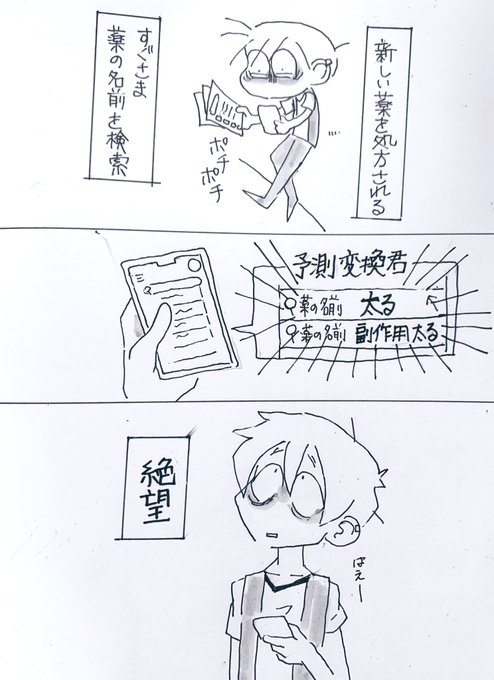 新しい薬を処方される
すごさま
薬の名前を検索
ポチ
ポチ
予測変換君
薬の名前 太る
薬の名前 副作用 太る
絶望
はえー